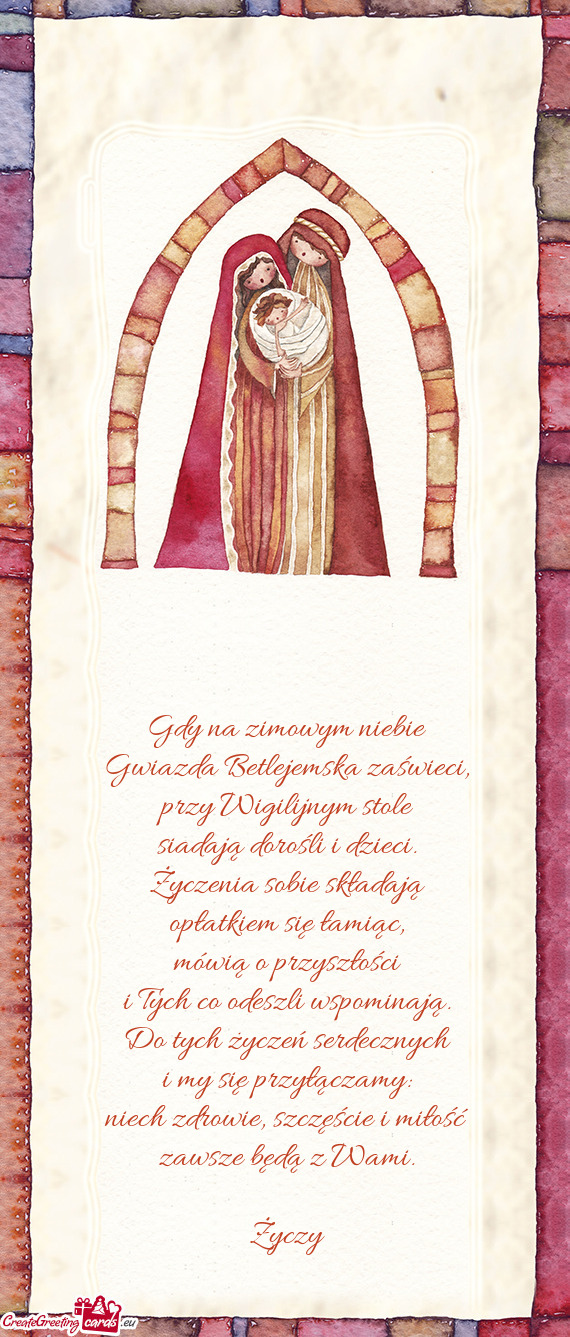 Gdy na zimowym niebie
Gwiazda Betlejemska zaświeci,
przy Wigilijnym stole
siadają dorośli i dzieci.
Życzenia sobie składają
opłatkiem się łamiąc,
mówią o przyszłości
i Tych co odeszli wspominają.
Do tych życzeń serdecznych
i my się przyłączamy:
niech zdrowie, szczęście i miłość
zawsze będą z Wami.
Życzy
CreateGreeting cards .eu